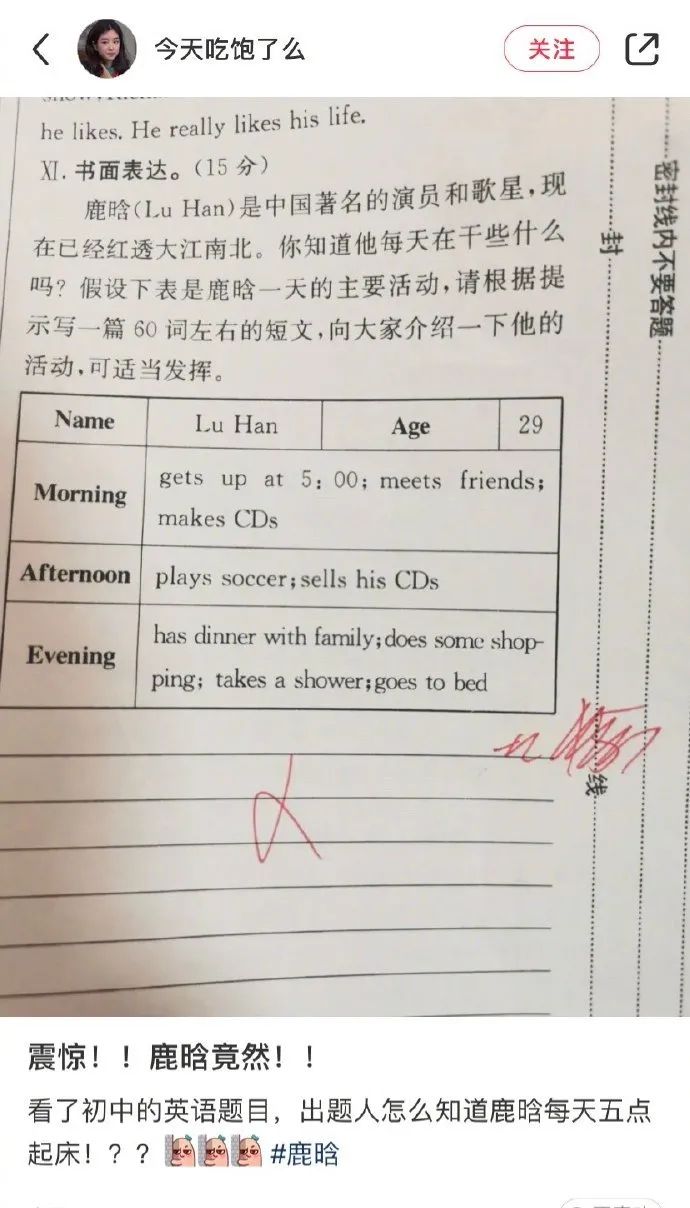 今天吃饱了么
关注
he likes. He really likes his life.
XI. 书面表达。(15 分)
鹿晗(Lu Han)是中国著名的演员和歌星,现
在已经红透大江南北。你知道他每天在干些什么
吗? 假设下表是鹿晗一天的主要活动,请根据提
示写一篇 60 词左右的短文,向大家介绍一下他的
活动,可适当发挥。
Name Lu Han Age 29
Morning
gets up at 5: 00; meets friends;
makes CDs
Afternoon plays soccer;sells his CDs
Evening
has dinner with family;does some shop-
ping; takes a shower;goes to bed
密封线内不要答题
封
线
震惊!!鹿晗竟然!!
看了初中的英语题目，出题人怎么知道鹿晗每天五点
起床!??#鹿晗